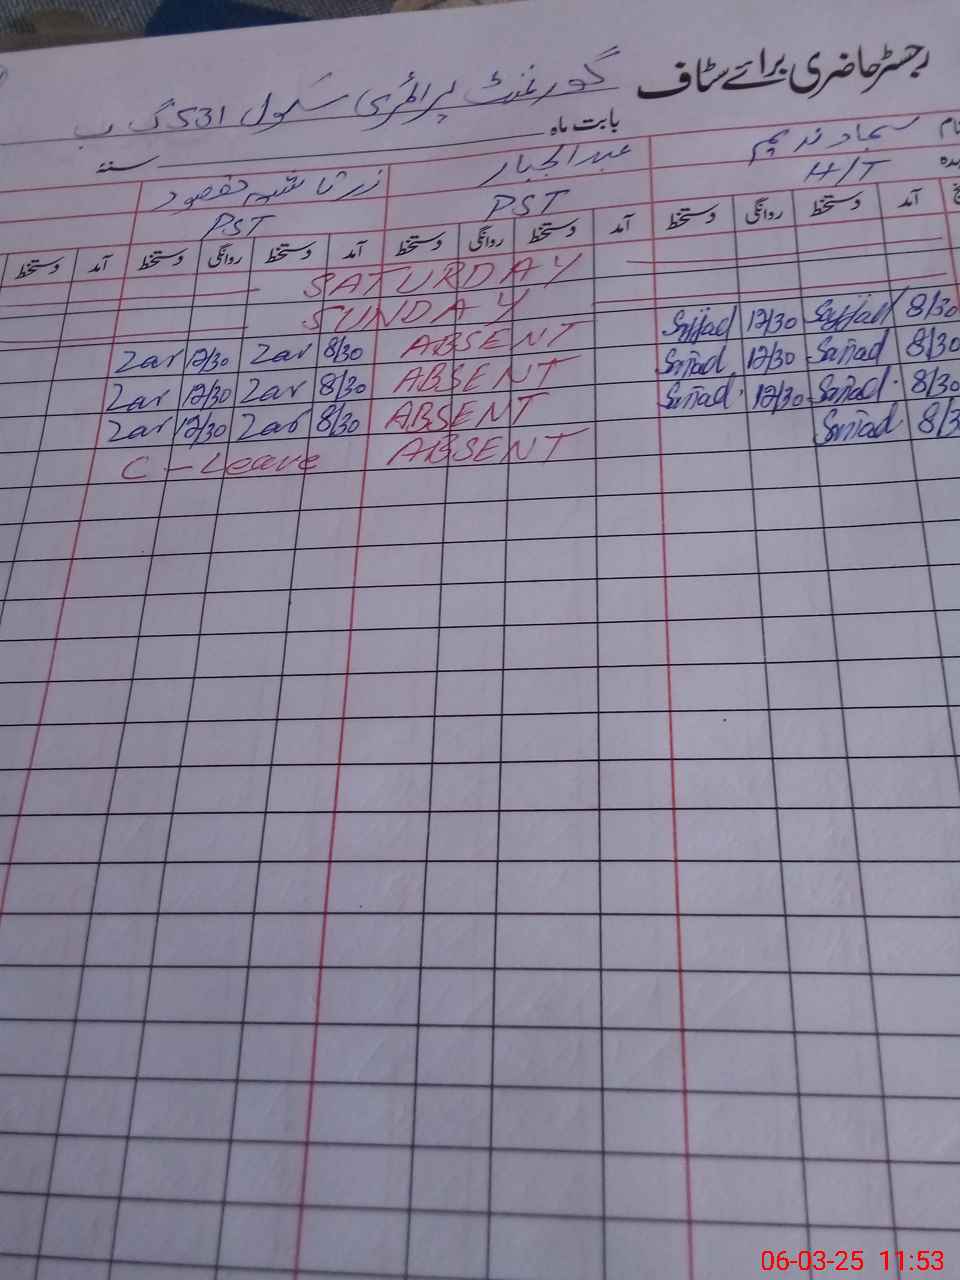 رجسٹر حاضری برائے سٹاف گورنمنٹ پرائمری سکول 531 گ ب
بابت ماہ سنہ
نام سجاد ندیم عبدالجبار زرتاشیہ مقصود
عہدہ H/T PST PST
آمد دستخط روانگی دستخط آمد دستخط روانگی دستخط آمد دستخط روانگی دستخط آمد دستخط
SATURDAY
SUNDAY
8/30 Sajjad 12/30 Sajjad ABSENT 8/30 Zar 12/30 Zar
8/30 Sajjad 12/30 Sajjad ABSENT 8/30 Zar 12/30 Zar
8/30 Sajjad 12/30 Sajjad ABSENT 8/30 Zar 12/30 Zar
8/3 Sajjad ABSENT C-Leave
06-03-25 11:53